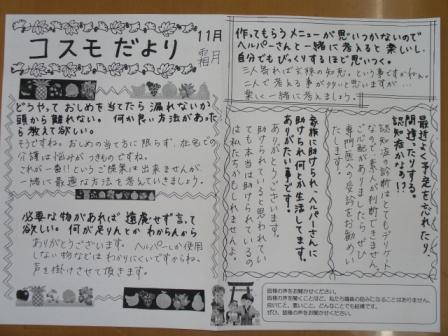 コスモだより
11月
霜月
どうやっておしめを当てたら漏れないか
頭から離れない。何か良い方法があった
ら教えて欲しい。
そうですね。おしめの当て方に限らず、在宅での
介護は悩みがつきものですね。
これが一番!!というご提案は出来ませんが、
一緒に最適な方法を考えていきましょう。
必要な物があれば遠慮せず言って
欲しい。何が足りんとかわからんから
ありがとうございます。ヘルパーしか使用
しない物などはわかりにくいですからね。
声を掛けさせて頂きます。
作ってもらうメニューが思いつかないので
ヘルパーさんと一緒に考えると楽しいし、
自分でもびっくりするほど思いつく。
三人寄れば文殊の知恵。という事ですかね。
二人で考える事が多いと思いますが…
楽しく一緒に考えましょう。
最近よく予定を忘れたり、
間違ったりする。
認知症かなの!?
認知症の診断はとてもデリケート
なので素人が判断できません。
ご心配がありましたらぜひ
専門医への受診をお勧めい
たします。
家族に助けられ、ヘルパーさんに
助けられ何とか生活してます。
ありがたい事です!
ありがとうございます。
助けられていると思われてい
ても本当は助けられているの
は私たちかもしれませんよ。
皆様の声をお聞かせください。
皆様の声を聞くことほど、私たち職員の励みになることはありません。
良いこと、悪いこと、どんなことでも結構です。
ぜひ、皆様の声をお聞かせください。